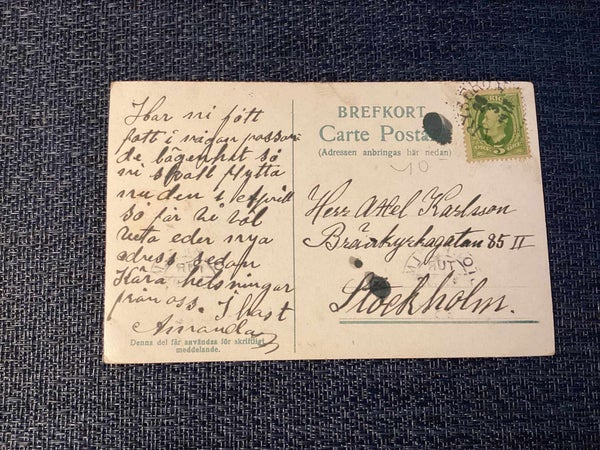 Har ni fått
fatt i någon passan
de lägenhet så
ni skall flytta
nu den i april
så får vi väl
veta eder nya
adress sedan
Kära helsningar
från oss. I hast
Amanda
Denna del får användas för skriftligt
meddelande.
BREFKORT
Carte Postale
(Adressen anbringas här nedan)
10
Herr Axel Karlsson
Brännkyrkagatan 85 II
Stockholm.